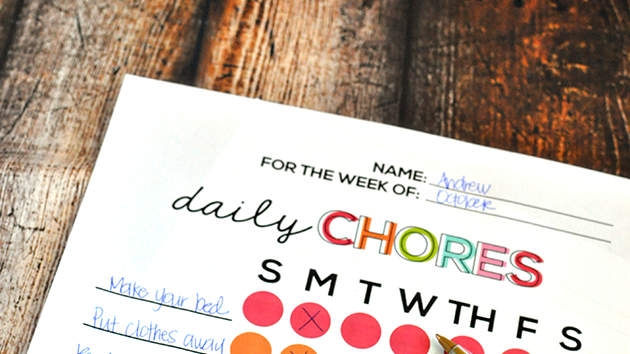 NAME: Andrew
FOR THE WEEK OF: October
daily CHORES
S M T W TH F S
Make your bed
Put clothes away